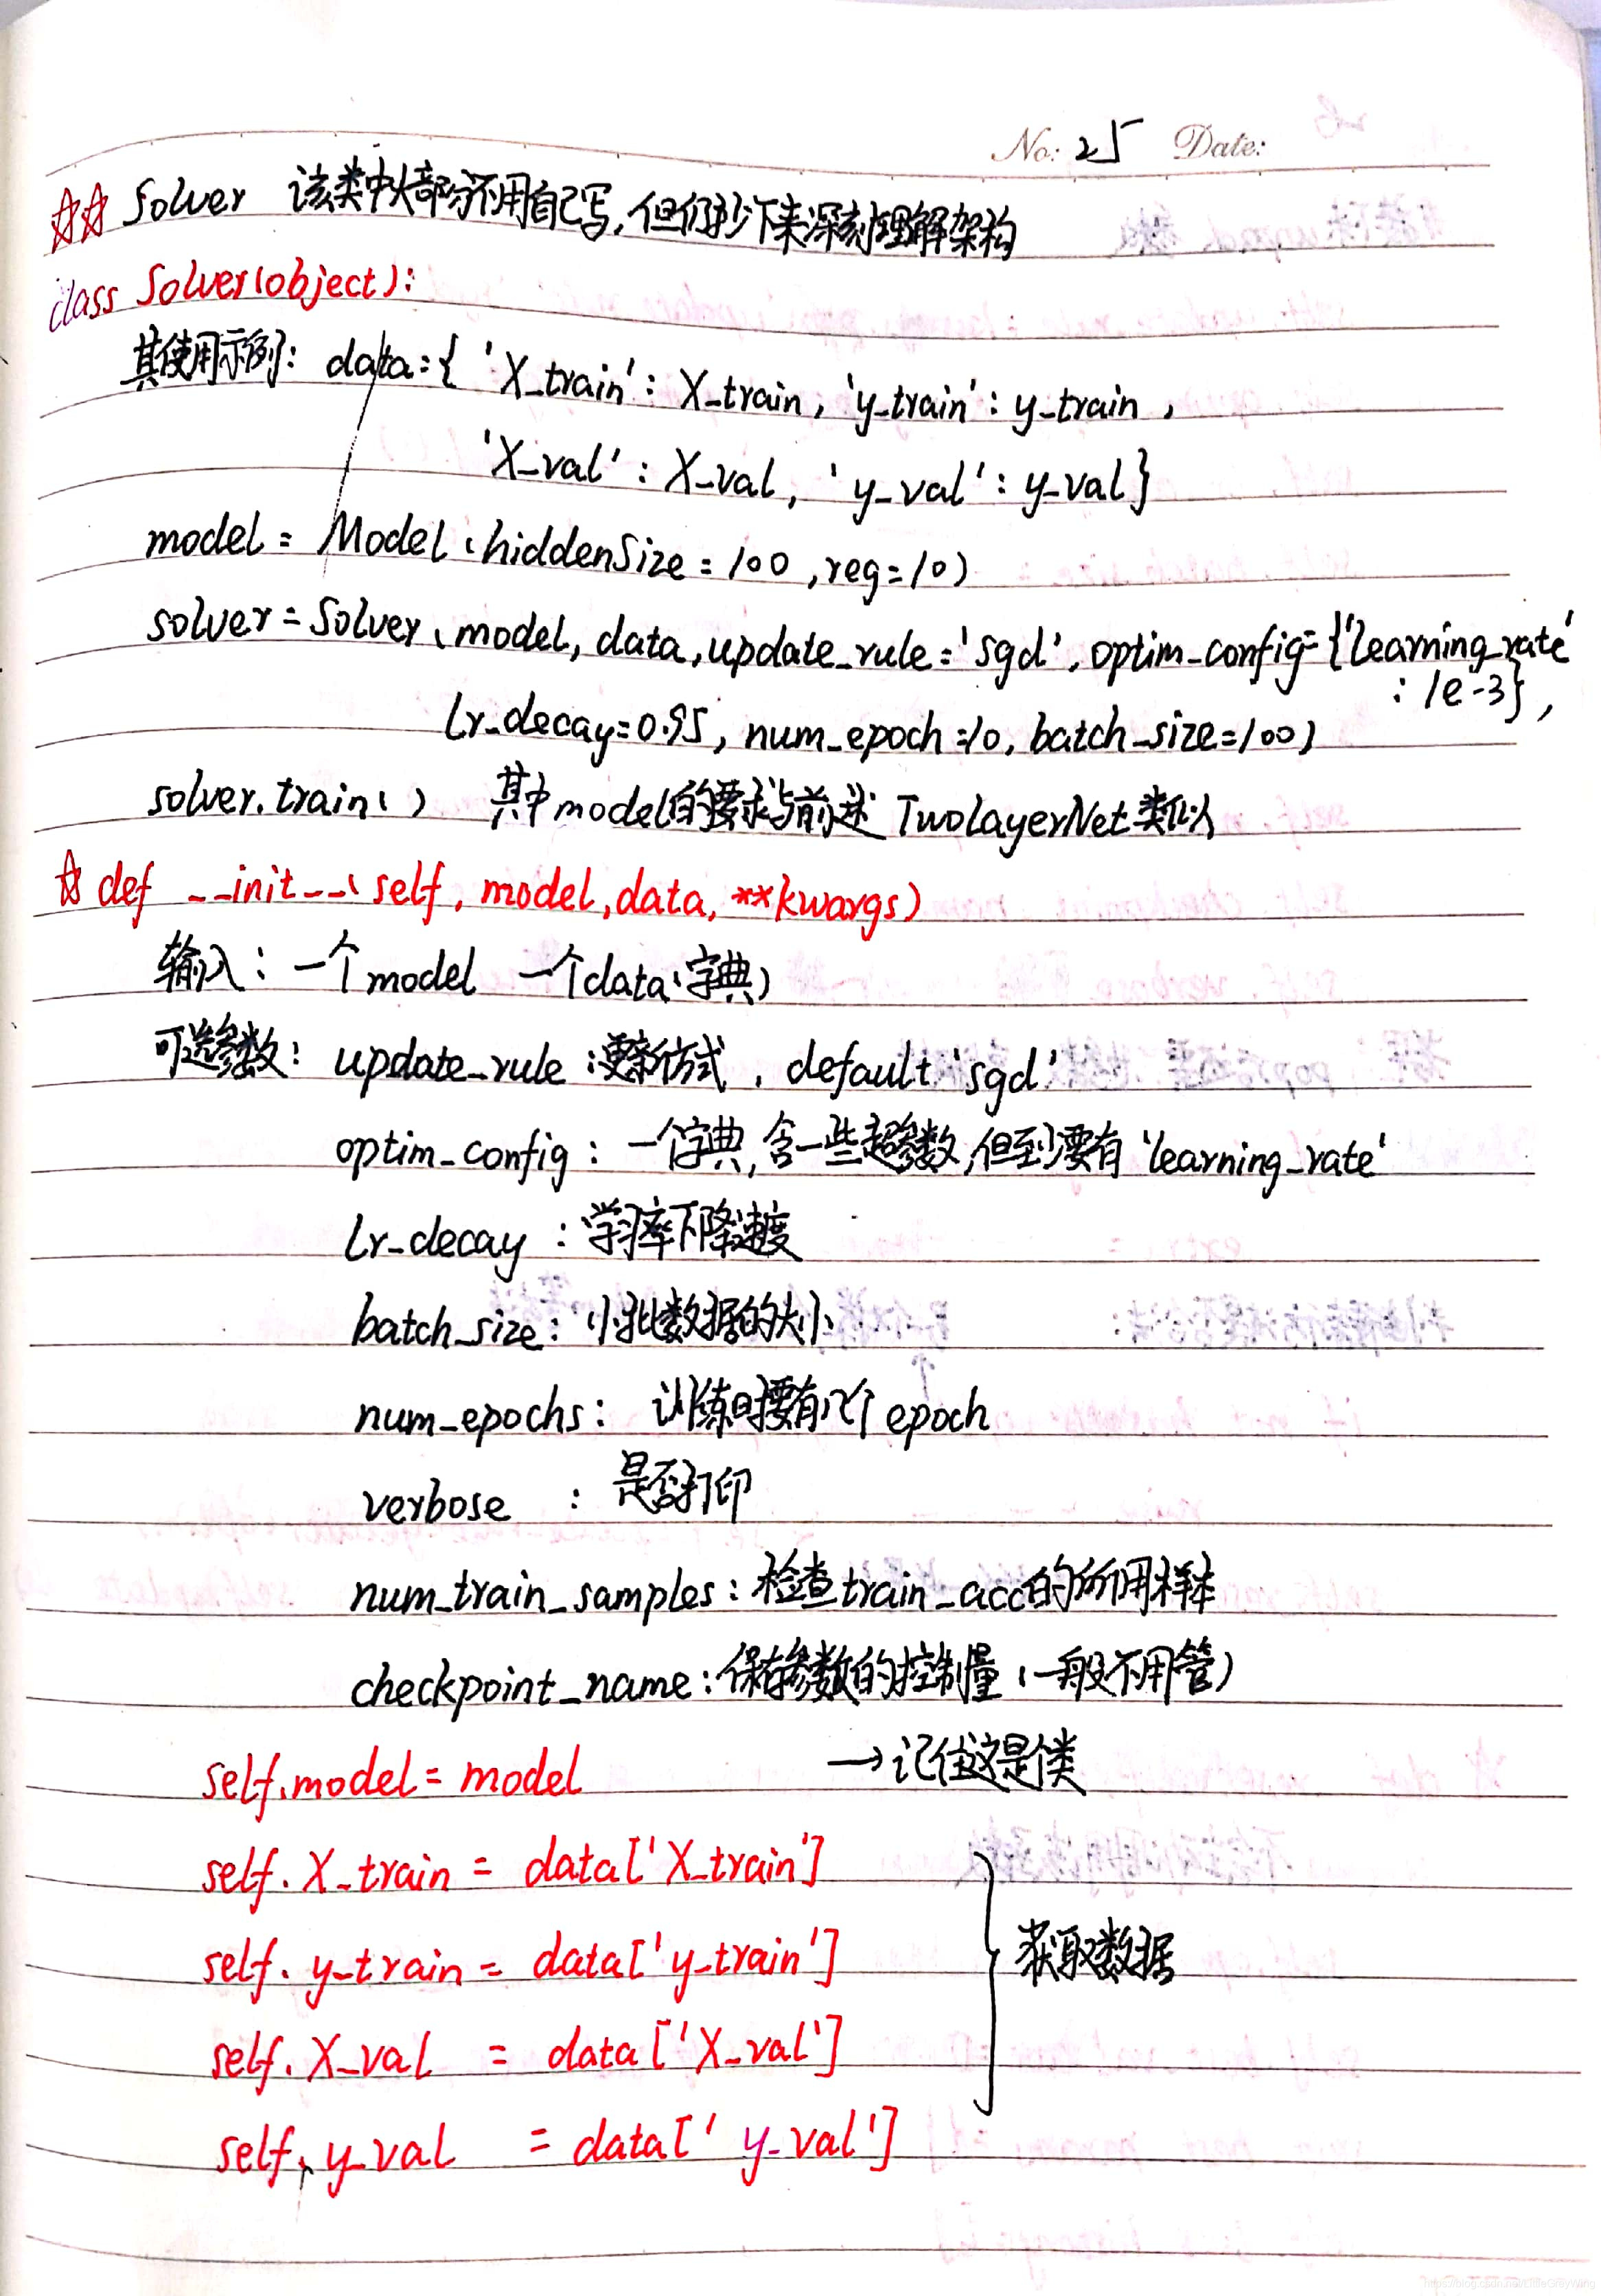 No: 25 Date:
☆☆ Solver 该类中大部分不用自己写,但仍抄下来深刻理解架构
class Solver(object):
其使用示例: data={ 'X_train': X_train, 'y_train': y_train,
'X_val': X_val, 'y_val': y_val}
model = Model(hiddenSize=100, reg=10)
solver=Solver(model, data, update_rule='sgd', optim_config={'learning_rate'
: 1e-3},
lr_decay=0.95, num_epoch=10, batch_size=100)
solver.train() 其中model的要求与前述 TwoLayerNet类似
☆ def __init__(self, model, data, **kwargs)
输入: 一个model 一个data(字典)
可选参数: update_rule :更新方式, default 'sgd'
optim_config: 一个字典,含一些超参数,但至少要有 'learning_rate'
lr_decay :学习率下降速度
batch_size: 小批数据的大小
num_epochs: 训练时要有几个epoch
verbose : 是否打印
num_train_samples: 检查train_acc的所用样本
checkpoint_name: 保存参数的控制量(一般不用管)
self.model= model →记住这是个类
self.X_train = data['X_train']
self.y_train = data['y_train'] 获取数据
self.X_val = data['X_val']
self.y_val = data['y_val']